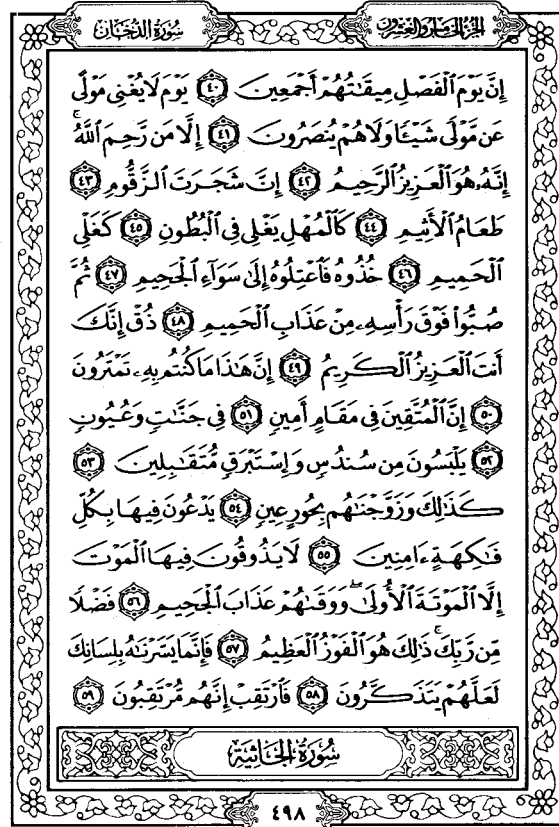 الجزء الخامس والعشرون
سُورَةُ الدُّخَان
إِنَّ يَوْمَ ٱلْفَصْلِ مِيقَٰتُهُمْ أَجْمَعِينَ ٤٠ يَوْمَ لَا يُغْنِى مَوْلًى
عَن مَّوْلًى شَيْـًٔا وَلَا هُمْ يُنصَرُونَ ٤١ إِلَّا مَن رَّحِمَ ٱللَّهُ ۚ
إِنَّهُۥ هُوَ ٱلْعَزِيزُ ٱلرَّحِيمُ ٤٢ إِنَّ شَجَرَتَ ٱلزَّقُّومِ ٤٣
طَعَامُ ٱلْأَثِيمِ ٤٤ كَٱلْمُهْلِ يَغْلِى فِى ٱلْبُطُونِ ٤٥ كَغَلْىِ
ٱلْحَمِيمِ ٤٦ خُذُوهُ فَٱعْتِلُوهُ إِلَىٰ سَوَآءِ ٱلْجَحِيمِ ٤٧ ثُمَّ
صُبُّوا۟ فَوْقَ رَأْسِهِۦ مِنْ عَذَابِ ٱلْحَمِيمِ ٤٨ ذُقْ إِنَّكَ
أَنتَ ٱلْعَزِيزُ ٱلْكَرِيمُ ٤٩ إِنَّ هَٰذَا مَا كُنتُم بِهِۦ تَمْتَرُونَ
٥٠ إِنَّ ٱلْمُتَّقِينَ فِى مَقَامٍ أَمِينٍ ٥١ فِى جَنَّٰتٍ وَعُيُونٍ
٥٢ يَلْبَسُونَ مِن سُندُسٍ وَإِسْتَبْرَقٍ مُّتَقَٰبِلِينَ ٥٣
كَذَٰلِكَ وَزَوَّجْنَٰهُم بِحُورٍ عِينٍ ٥٤ يَدْعُونَ فِيهَا بِكُلِّ
فَٰكِهَةٍ ءَامِنِينَ ٥٥ لَا يَذُوقُونَ فِيهَا ٱلْمَوْتَ
إِلَّا ٱلْمَوْتَةَ ٱلْأُولَىٰ ۖ وَوَقَىٰهُمْ عَذَابَ ٱلْجَحِيمِ ٥٦ فَضْلًا
مِّن رَّبِّكَ ۚ ذَٰلِكَ هُوَ ٱلْفَوْزُ ٱلْعَظِيمُ ٥٧ فَإِنَّمَا يَسَّرْنَٰهُ بِلِسَانِكَ
لَعَلَّهُمْ يَتَذَكَّرُونَ ٥٨ فَٱرْتَقِبْ إِنَّهُم مُّرْتَقِبُونَ ٥٩
سُورَةُ الجَاثِيَة
٤٩٨